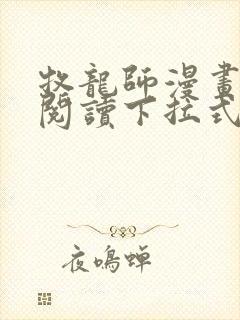 牧龍師漫畫
閱讀下拉式
夜鳴蟬